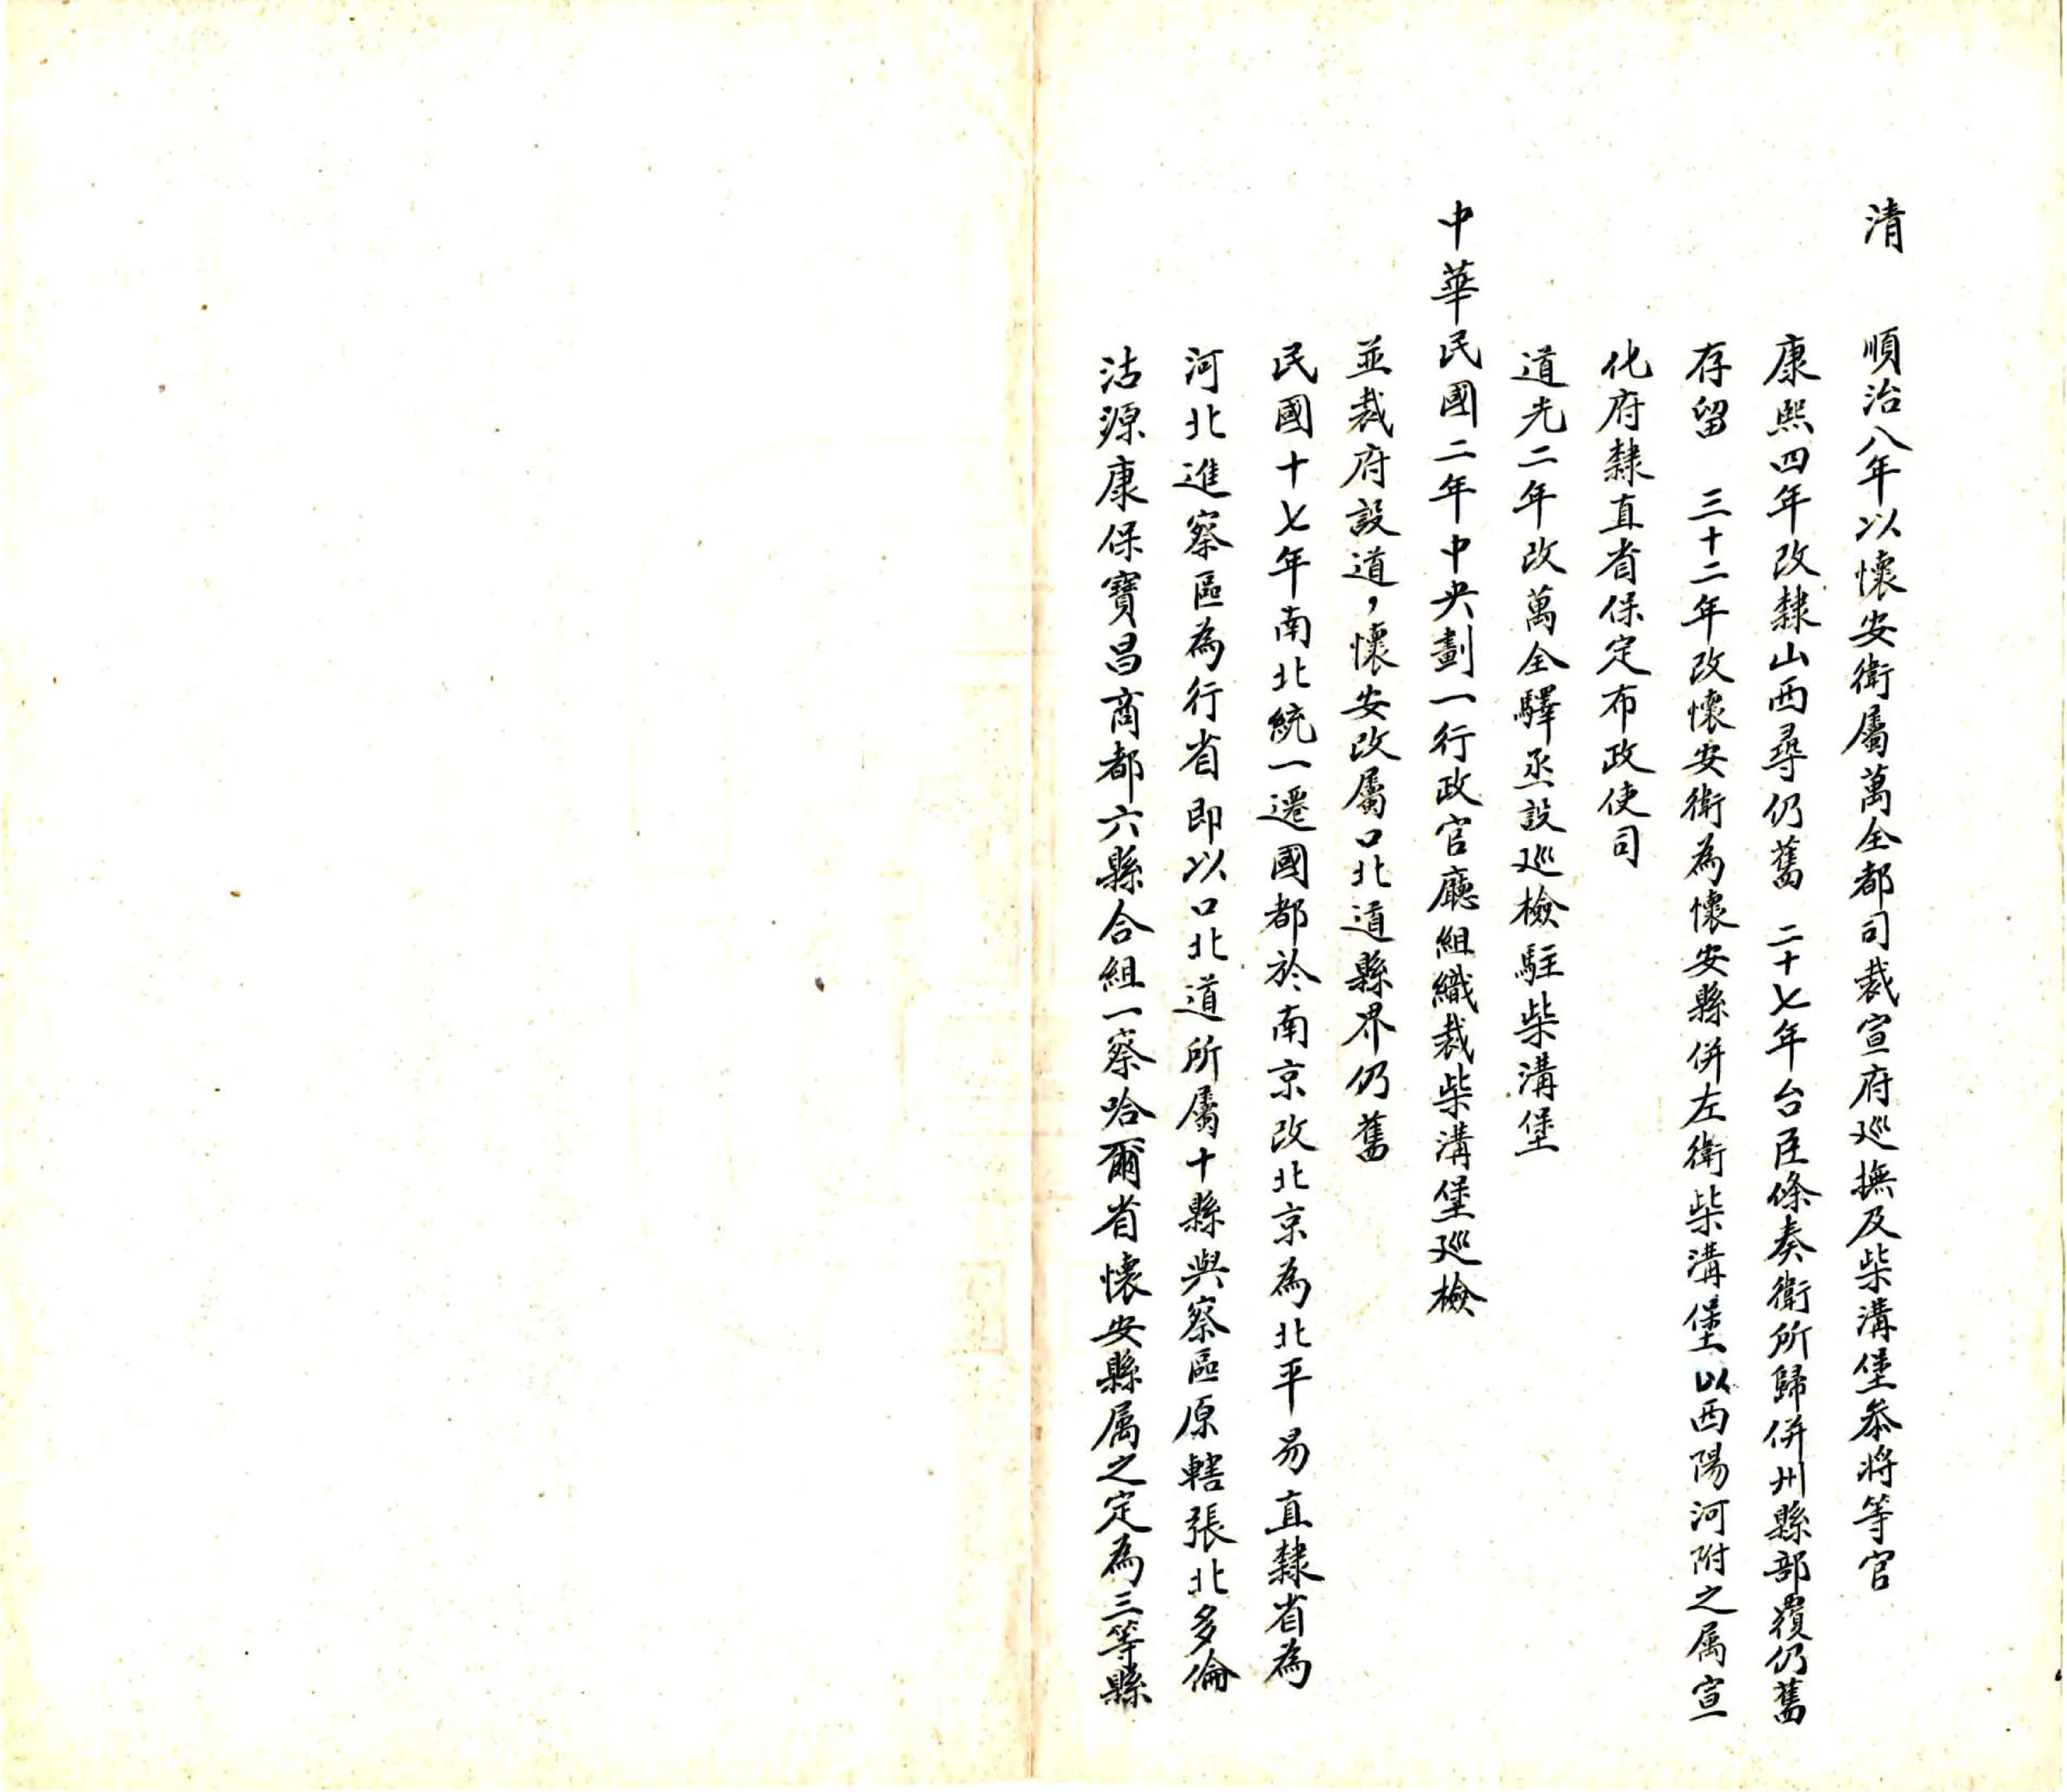 清　順治八年以懷安衛屬萬全都司裁宣府巡撫及柴溝堡叅將等官
康熙四年改隸山西尋仍舊　二十七年台臣條奏衛所歸併州縣部覆仍舊
存留　三十二年改懷安衛為懷安縣併左衛柴溝堡以西陽河附之属宣
化府隸直省保定布政使司
道光二年改萬全驛丞設巡檢駐柴溝堡
中華民國二年中央劃一行政官廳組織裁柴溝堡巡檢
並裁府設道，懷安改屬口北道縣界仍舊
民國十七年南北統一遷國都於南京改北京為北平易直隸省為
河北進察區為行省即以口北道所屬十縣與察區原轄張北多倫
沽源康保寶昌商都六縣合組一察哈爾省懷安縣属之定為三等縣